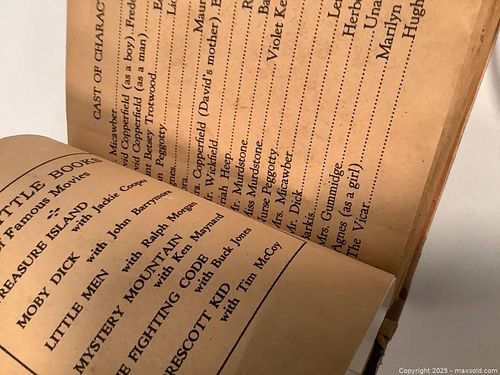 CAST OF CHARACT
Micawber
vid Copperfield (as a boy). Fredd
vid Copperfield (as a man)
unt Betsey Trotwood
an Peggotty
Lio
rs. Copperfield (David's mother) E
Maur
r. Wickfield
riah Heep
Mr. Murdstone
Miss Murdstone
Nurse Peggotty
Violet Ke
Mrs. Micawber
Mr. Dick
Barkis
Mrs. Gummidge
Herbe
Agnes (as a girl)
Una
Marilyn
The Vicar
Hugh
ITTLE BOOKS
of Famous Movies
REASURE ISLAND
with Jackie Cooper
MOBY DICK
with John Barrymore
LITTLE MEN
with Ralph Morgan
MYSTERY MOUNTAIN
with Ken Maynard
E FIGHTING CODE
with Buck Jones
PRESCOTT KID
with Tim McCoy
Copyright 2025 - maxsold.com